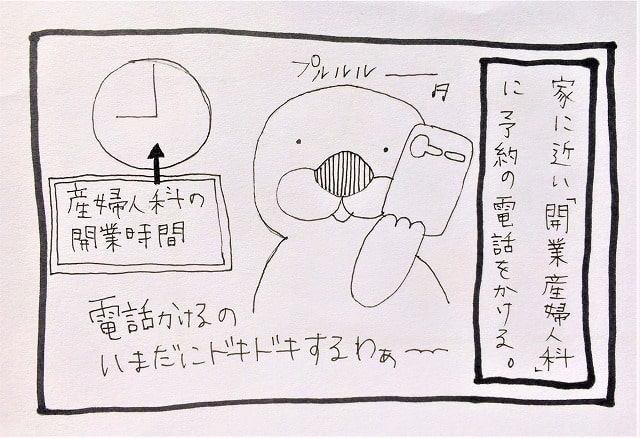 家に近い「開業産婦人科」
に予約の電話をかける。
プルルルー
産婦人科の
開業時間
電話かけるの
いまだにドキドキするわぁ〜